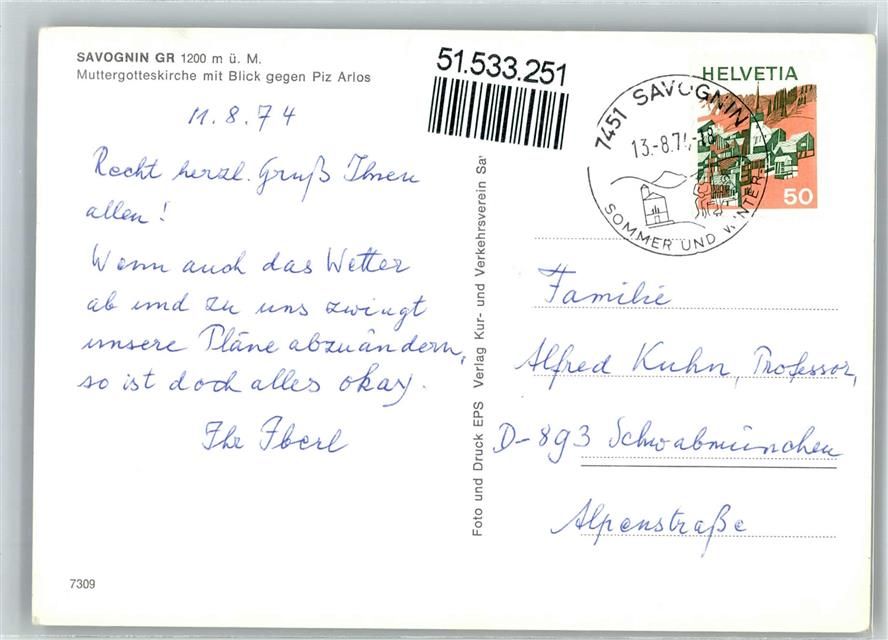 SAVOGNIN GR 1200 m ü. M.
Muttergotteskirche mit Blick gegen Piz Arlos
11.8.74
Recht herzl. Gruß Ihnen
allen!
Wenn auch das Wetter
ab und zu uns zwingt
unsere Pläne abzuändern,
so ist doch alles okay.
Ihr Iberl
7309
51.533.251
Foto und Druck EPS Verlag Kur- und Verkehrsverein Sa
HELVETIA
50
7451 SAVOGNIN
13.-8.74-18
SOMMER UND WINTER
Familie
Alfred Kuhn, Professor,
D-893 Schwabmünchen
Alpenstraße